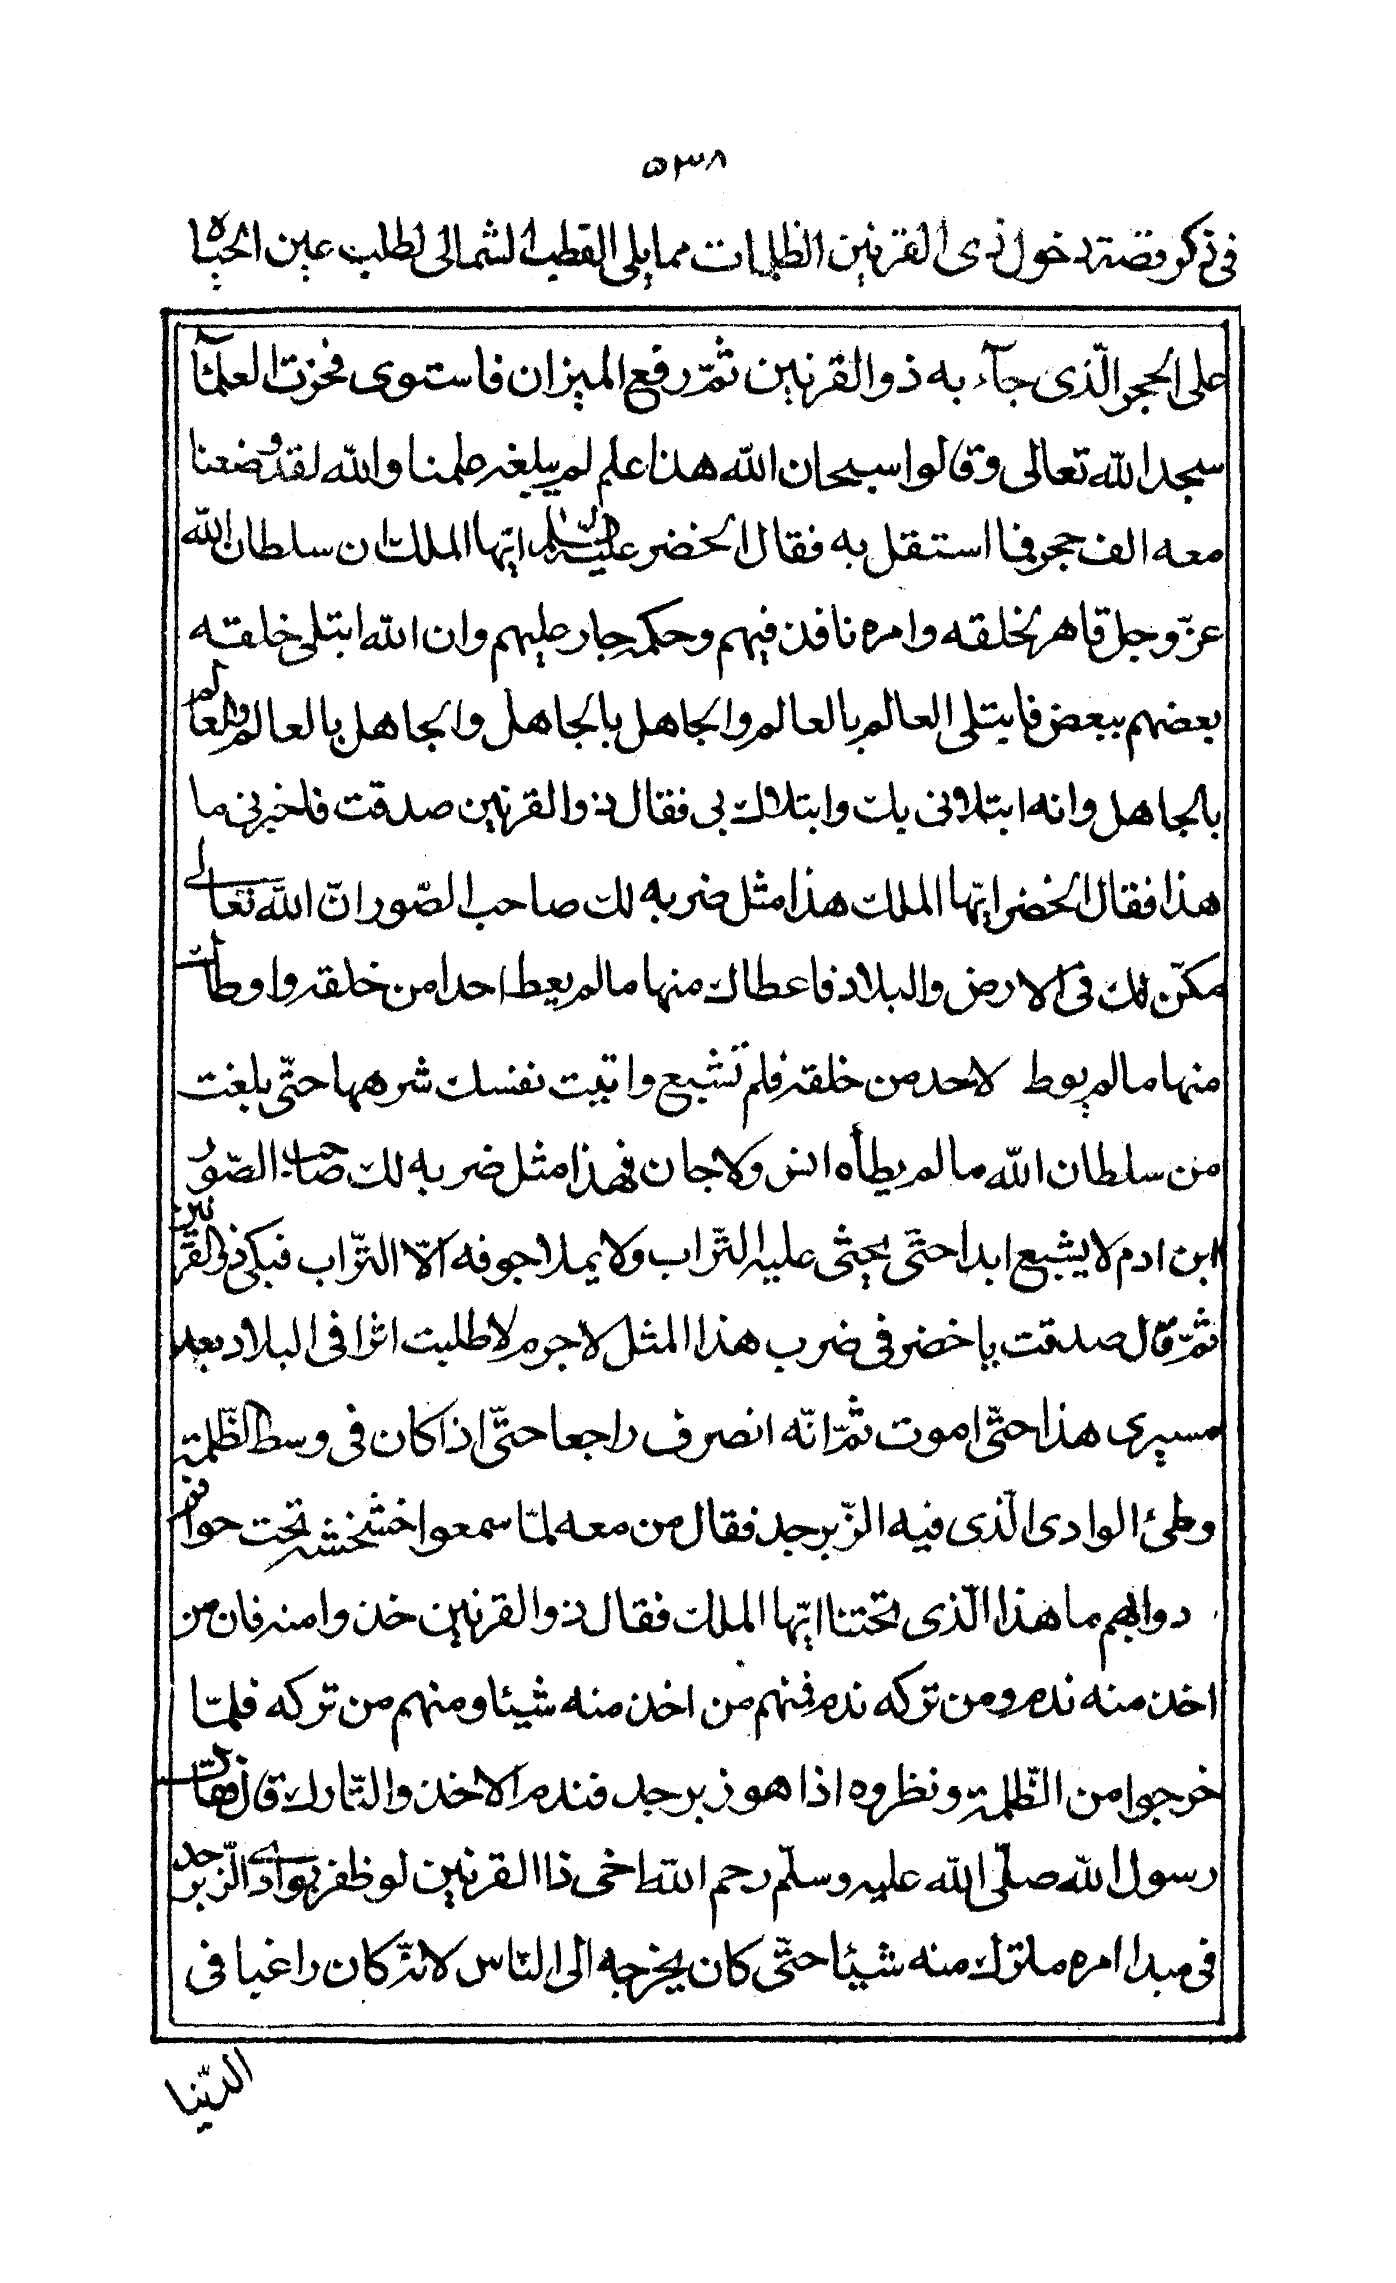 ٥٣٨
في ذكر قصة دخول ذى القرنين الظلمات مما يلي القطب الشمالى لطلب عين الحياة
على الحجر الّذى جآء به ذو القرنين ثمّ رفع الميزان فاستوى فخرت العلمآء
سجدا لله تعالى وقالوا سبحان الله هذا علم لم يبلغه علمنا والله لقد وضعنا
معه الف حجر فما استقل به فقال الخضر عليه السلم ايّها الملك ان سلطان الله
عزّ وجل قاهر لخلقه وامره نافذ فيهم وحكمه جار عليهم وان الله ابتلى خلقه
بعضهم ببعض فابتلى العالم بالعالم والجاهل بالجاهل والجاهل بالعالم والعالم
بالجاهل وانه ابتلانى بك وابتلاك بى فقال ذو القرنين صدقت فاخبرنى ما
هذا فقال الخضر ايّها الملك هذا مثل ضربه لك صاحب الصّور انّ الله تعالى
مكّن لك فى الارض والبلاد فاعطاك منها ما لم يعط احدا من خلقه واوطأك
منها ما لم يوط لاحد من خلقه فلم تشبع واتيت نفسك شرهها حتّى بلغت
من سلطان الله ما لم يطأه انس ولا جان فهذا مثل ضربه لك صاحب الصّور
ابن ادم لا يشبع ابدا حتّى يحثى عليه التّراب ولا يملا جوفه الّا التّراب فبكى ذو القرنين
ثمّ قال صدقت يا خضر فى ضرب هذا المثل لا جرم لا طلبت اثرا فى البلاد بعد
مسيرى هذا حتّى اموت ثمّ انّه انصرف راجعا حتّى اذا كان فى وسط الظّلمة
وطئ الوادى الّذى فيه الزّبرجد فقال من معه لمّا سمعوا خشخشه تحت حوافر
دوابهم ما هذا الّذى تحتنا ايّها الملك فقال ذو القرنين خذوا منه فان من
اخذ منه ندم ومن تركه ندم فمنهم من اخذ منه شيئا ومنهم من تركه فلمّا
خرجوا من الظّلمة ونظروه اذا هو زبرجد فندم الاخذ والتّارك قال فقال
رسول الله صلّى الله عليه وسلّم رحم الله اخى ذا القرنين لو ظفر بوادى الزّبرجد
فى مبدا امره ما ترك منه شيئا حتّى كان يخرجه الى النّاس لانّه كان راغبا فى
الدّنيا